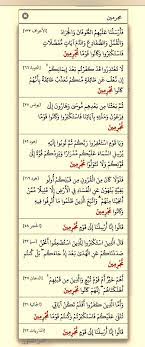 مجرمين
فَأَرْسَلْنَا عَلَيْهِمُ الطُّوفَانَ وَالْجَرَادَ [الأعراف ١٣٣]
وَالْقُمَّلَ وَالضَّفَادِعَ وَالدَّمَ آيَاتٍ مُّفَصَّلَاتٍ
فَاسْتَكْبَرُوا وَكَانُوا قَوْمًا مُّجْرِمِينَ
لَا تَعْتَذِرُوا قَدْ كَفَرْتُم بَعْدَ إِيمَانِكُمْ [التوبة ٦٦]
إِن نَّعْفُ عَن طَائِفَةٍ مِّنكُمْ نُعَذِّبْ طَائِفَةً بِأَنَّهُمْ
كَانُوا مُجْرِمِينَ
ثُمَّ بَعَثْنَا مِن بَعْدِهِم مُّوسَىٰ وَهَارُونَ إِلَىٰ [يونس ٧٥]
فِرْعَوْنَ وَمَلَئِهِ بِآيَاتِنَا فَاسْتَكْبَرُوا وَكَانُوا قَوْمًا
مُّجْرِمِينَ
وَيَا قَوْمِ اسْتَغْفِرُوا رَبَّكُمْ ثُمَّ تُوبُوا إِلَيْهِ [هود ٥٢]
يُرْسِلِ السَّمَاءَ عَلَيْكُم مِّدْرَارًا وَيَزِدْكُمْ قُوَّةً إِلَىٰ
قُوَّتِكُمْ وَلَا تَتَوَلَّوْا مُجْرِمِينَ
فَلَوْلَا كَانَ مِنَ الْقُرُونِ مِن قَبْلِكُمْ أُولُو [هود ١١٦]
بَقِيَّةٍ يَنْهَوْنَ عَنِ الْفَسَادِ فِي الْأَرْضِ إِلَّا قَلِيلًا مِّمَّنْ
أَنجَيْنَا مِنْهُمْ وَاتَّبَعَ الَّذِينَ ظَلَمُوا مَا أُتْرِفُوا فِيهِ
وَكَانُوا مُجْرِمِينَ
قَالُوا إِنَّا أُرْسِلْنَا إِلَىٰ قَوْمٍ مُّجْرِمِينَ [الحجر ٥٨]
قَالَ الَّذِينَ اسْتَكْبَرُوا لِلَّذِينَ اسْتُضْعِفُوا أَنَحْنُ [سبأ ٣٢]
صَدَدْنَاكُمْ عَنِ الْهُدَىٰ بَعْدَ إِذْ جَاءَكُم بَلْ كُنتُم
مُّجْرِمِينَ
أَهُمْ خَيْرٌ أَمْ قَوْمُ تُبَّعٍ وَالَّذِينَ مِن قَبْلِهِمْ [الدخان ٣٧]
أَهْلَكْنَاهُمْ إِنَّهُمْ كَانُوا مُجْرِمِينَ
وَأَمَّا الَّذِينَ كَفَرُوا أَفَلَمْ تَكُنْ آيَاتِي [الجاثية ٣١]
تُتْلَىٰ عَلَيْكُمْ فَاسْتَكْبَرْتُمْ وَكُنتُمْ قَوْمًا مُّجْرِمِينَ
قَالُوا إِنَّا أُرْسِلْنَا إِلَىٰ قَوْمٍ مُّجْرِمِينَ [الذاريات ٣٢]